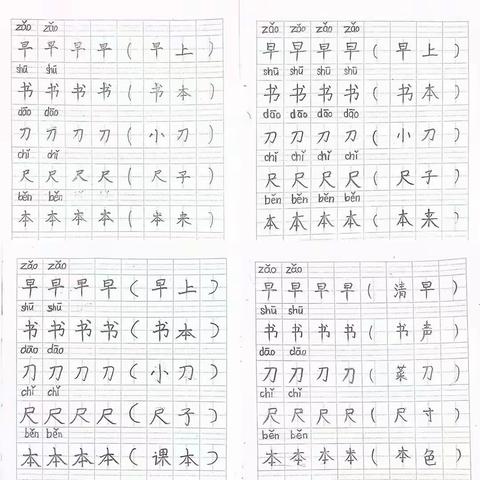 zǎo zǎo
早 早 早 早 ( 早 上 )
shū shū
书 书 书 书 ( 书 本 )
dāo dāo
刀 刀 刀 刀 ( 小 刀 )
chǐ chǐ
尺 尺 尺 尺 ( 尺 子 )
běn běn
本 本 本 本 ( 本 来 )
zǎo zǎo zǎo zǎo
早 早 早 早 ( 早 上 )
shū shū shū shū
书 书 书 书 ( 书 本 )
dāo dāo dāo dāo
刀 刀 刀 刀 ( 小 刀 )
chǐ chǐ chǐ chǐ
尺 尺 尺 尺 ( 尺 子 )
běn běn běn běn
本 本 本 本 ( 本 来 )
zǎo zǎo
早 早 早 早 ( 早 上 )
shū shū
书 书 书 书 ( 书 本 )
dāo dāo
刀 刀 刀 刀 ( 小 刀 )
chǐ chǐ
尺 尺 尺 尺 ( 尺 子 )
běn běn
本 本 本 本 ( 课 本 )
zǎo zǎo
早 早 早 早 ( 清 早 )
shū shū
书 书 书 书 ( 书 声 )
dāo dāo
刀 刀 刀 刀 ( 菜 刀 )
chǐ chǐ
尺 尺 尺 尺 ( 尺 寸 )
běn běn
本 本 本 本 ( 本 色 )